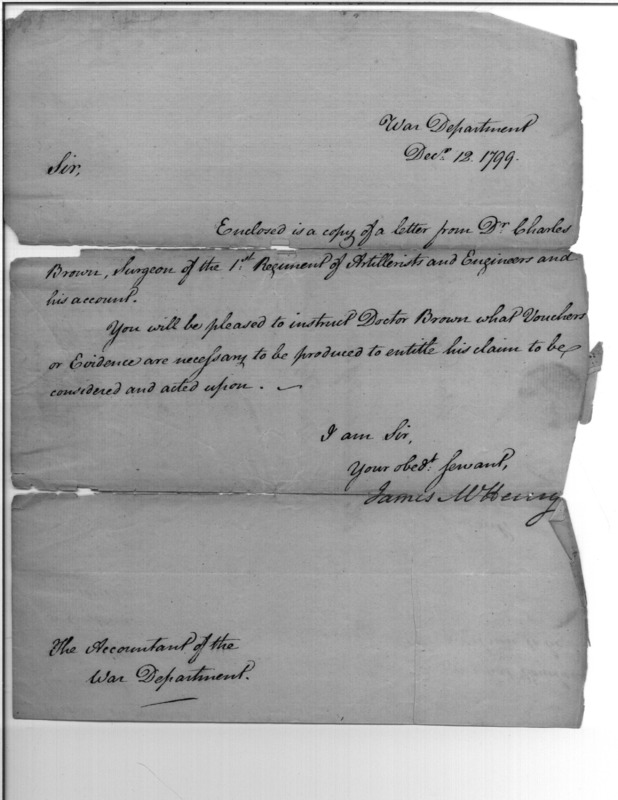 War Department
Decr. 12. 1799.
Sir,
Enclosed is a copy of a letter from Dr. Charles
Brown, Surgeon of the 1.st Regiment of Artillerists and Engineers and
his account.
You will be pleased to instruct Doctor Brown what Vouchers
or Evidence are neceſsary to be produced to entitle his claim to be
considered and acted upon. ~
I am Sir,
Your obedt. servant,
James McHenry
The Accountant of the
War Department.